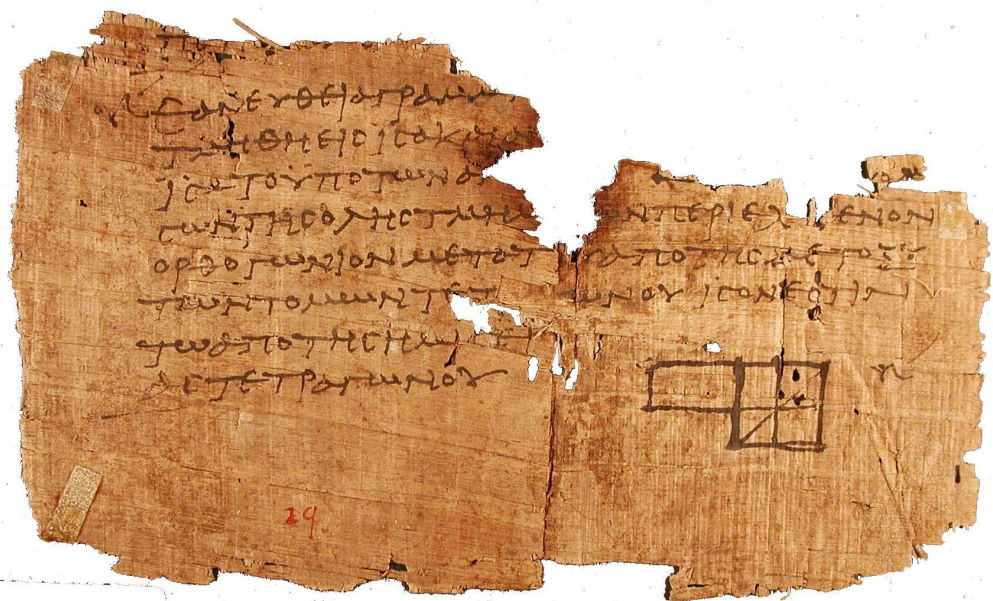 ΕΑΝΕΥΘΕΙΑΓΡΑΜΜ
ΤΜΗΘΗΕΙCΙCΑΚΑΙΑΝ
ΙCΑΤΟΫΠΟΤΩΝΑ
CΩΝΤΗCΟΛΗCΤΜΗΜ ΩΝΠΕΡΙΕΧ ΜΕΝΟΝ
ΟΡΘΟΓΩΝΙΟΝΜΕΤΑΤ ΑΠΟΤΗCΜΕΤΟΞΥ
ΤΩΝΤΟΜΩΝΤΕΤ ΩΝΟΥΙCΟΝΕCΤΙΝ
ΤΩΑΠΟΤΗCΗΜΙCΕΙ
ΑCΤΕΤΡΑΓΩΝΟΥ
29